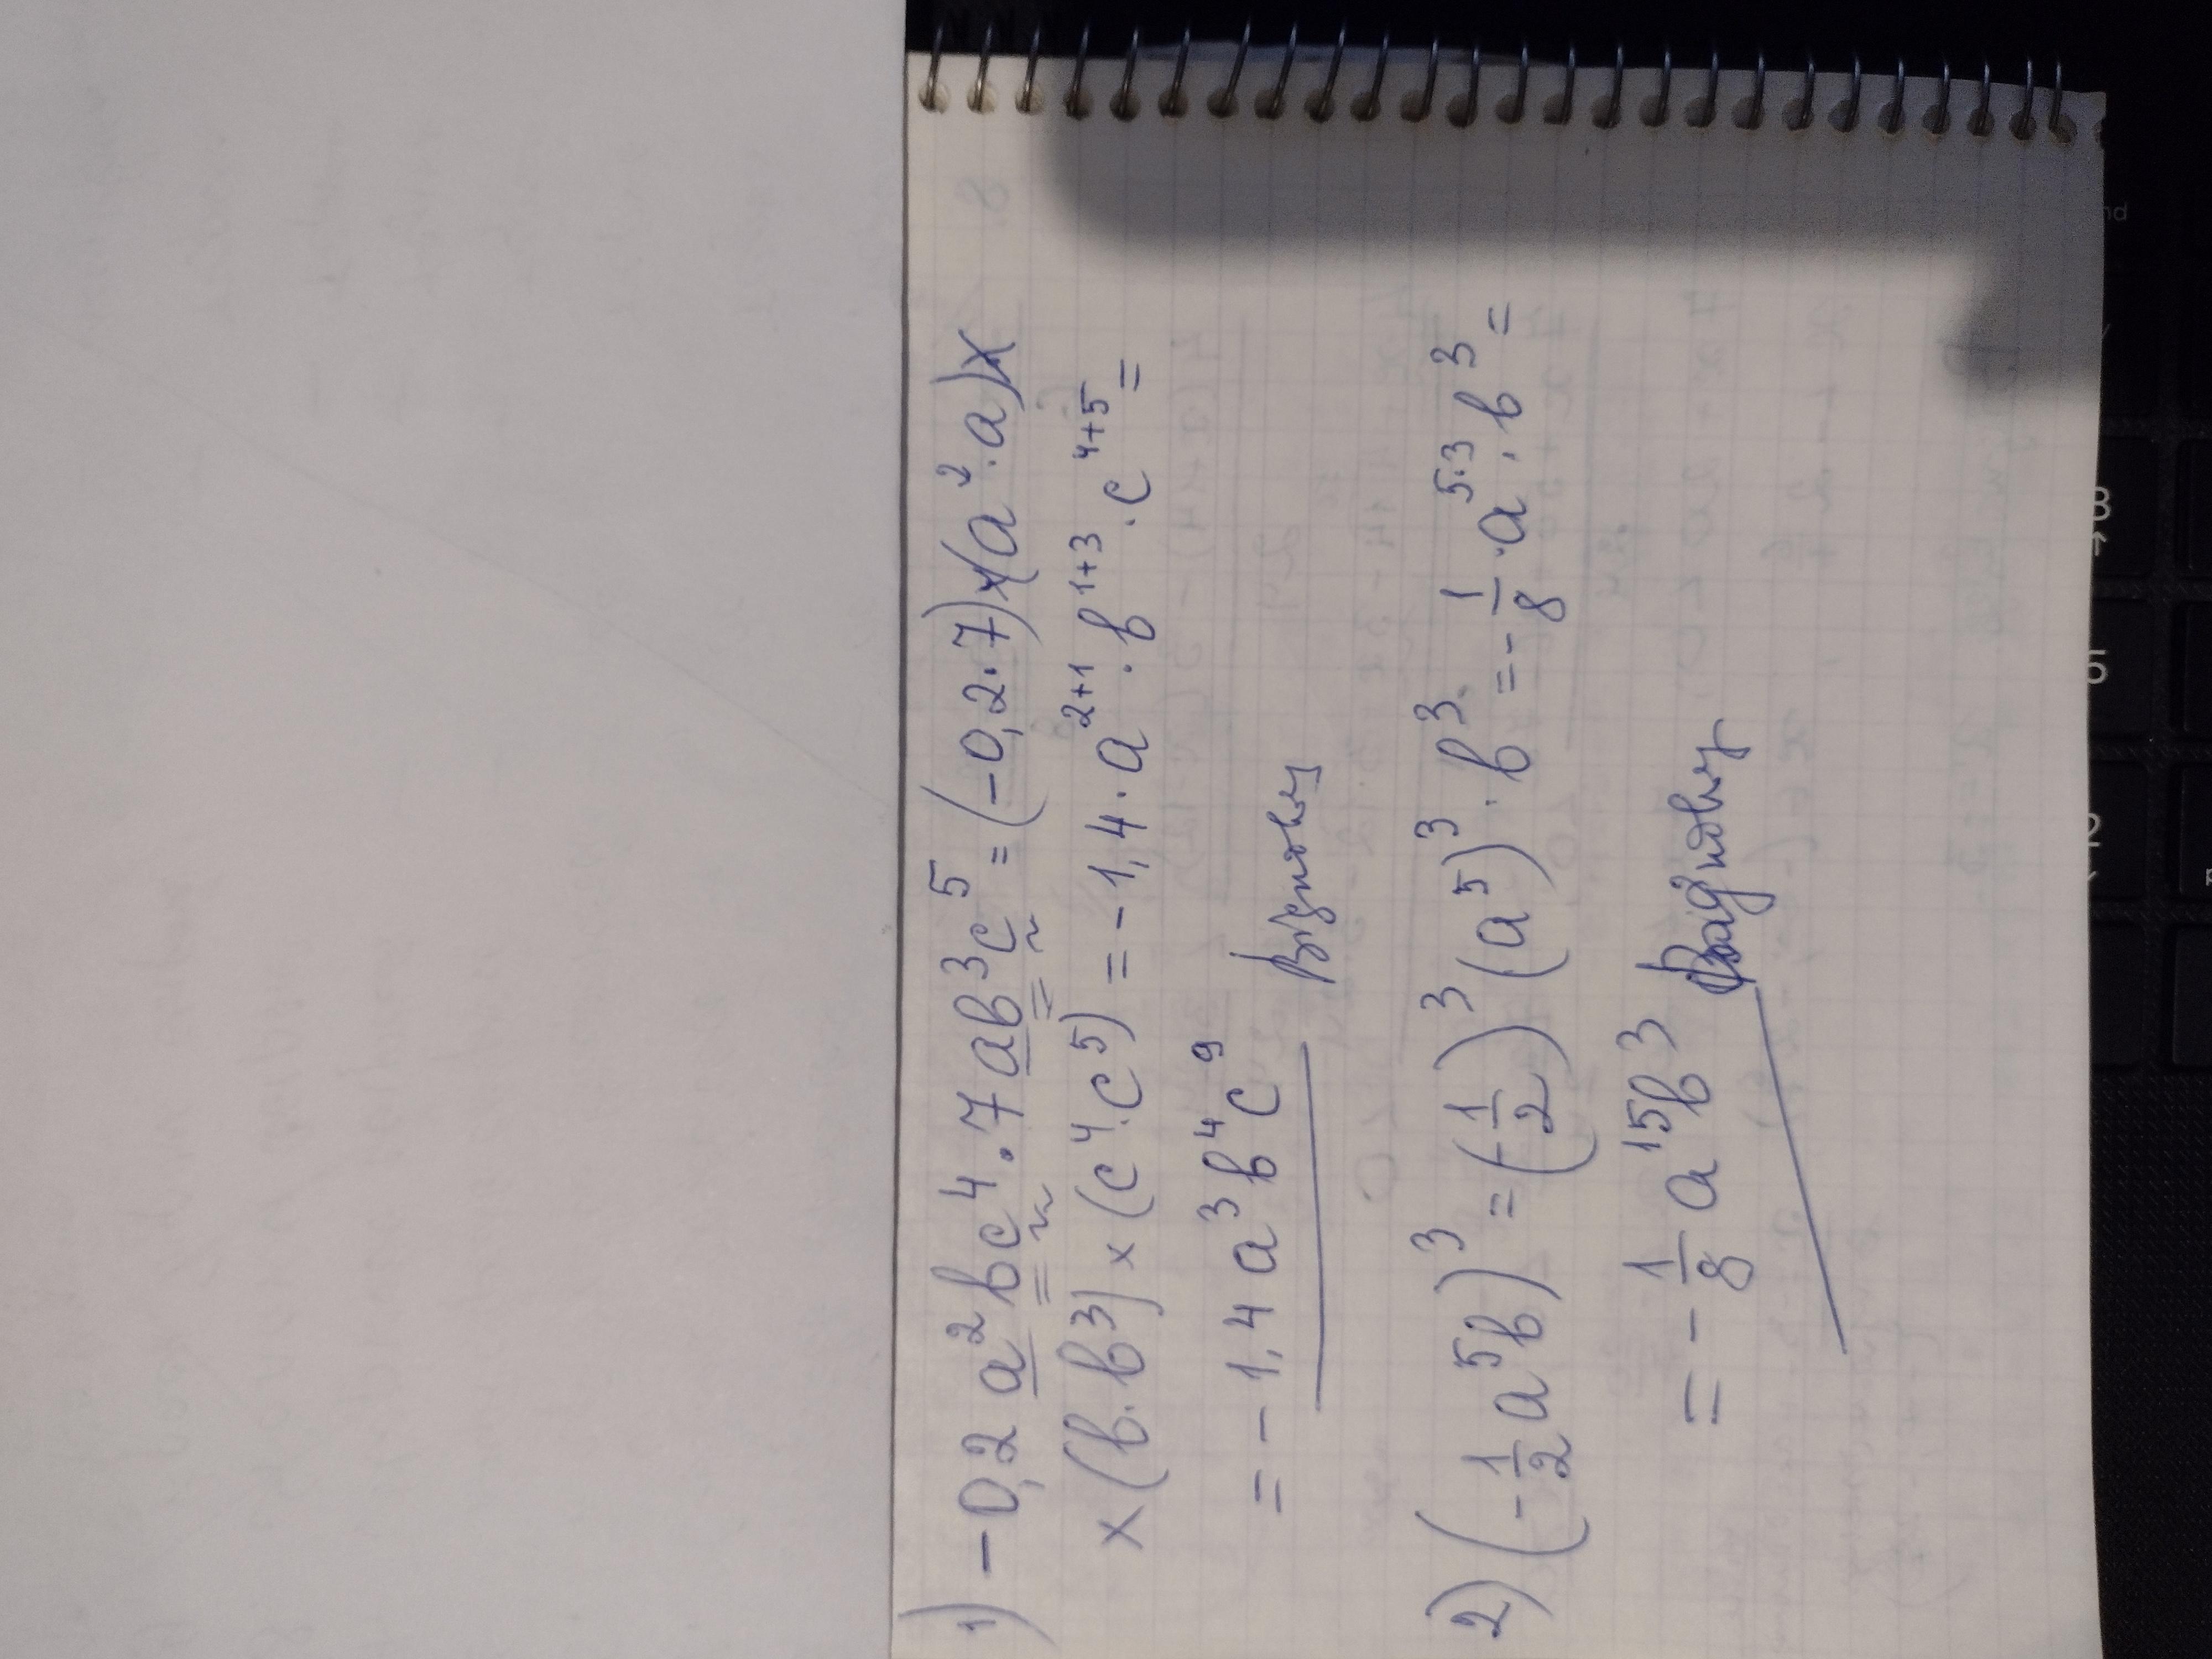 1) -0,2 a²bc⁴ · 7ab³c⁵ = (-0,2·7)×(a²·a)×
×(b·b³)×(c⁴·c⁵) = -1,4·a²⁺¹·b¹⁺³·c⁴⁺⁵ =
= -1,4 a³b⁴c⁹
Відповідь
2) (-1/2 a⁵b)³ = (-1/2)³(a⁵)³·b³ = -1/8·a⁵·³·b³ =
= -1/8 a¹⁵b³